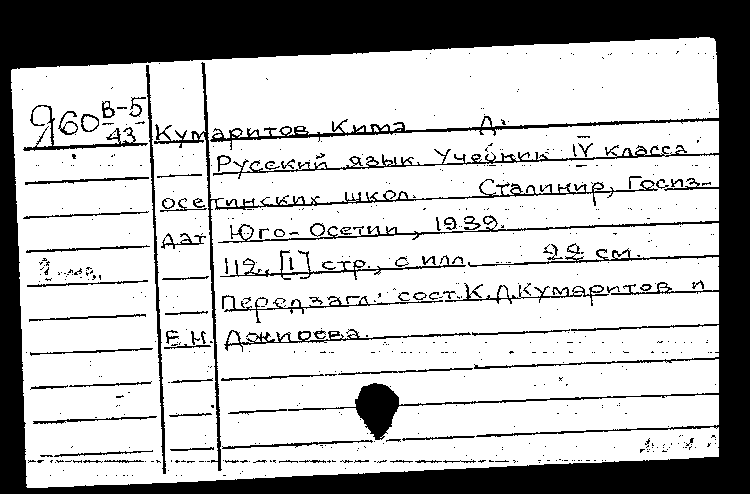 Я60 В-5/43
Кумаритов, Кима Д.
Русский язык. Учебник IV класса
осетинских школ. Сталинир, Госиз-
дат Юго-Осетии, 1939.
112, [1] стр., с илл. 22 см.
Перед загл.: сост. К.Д. Кумаритов и
Е.Н. Джиоева.